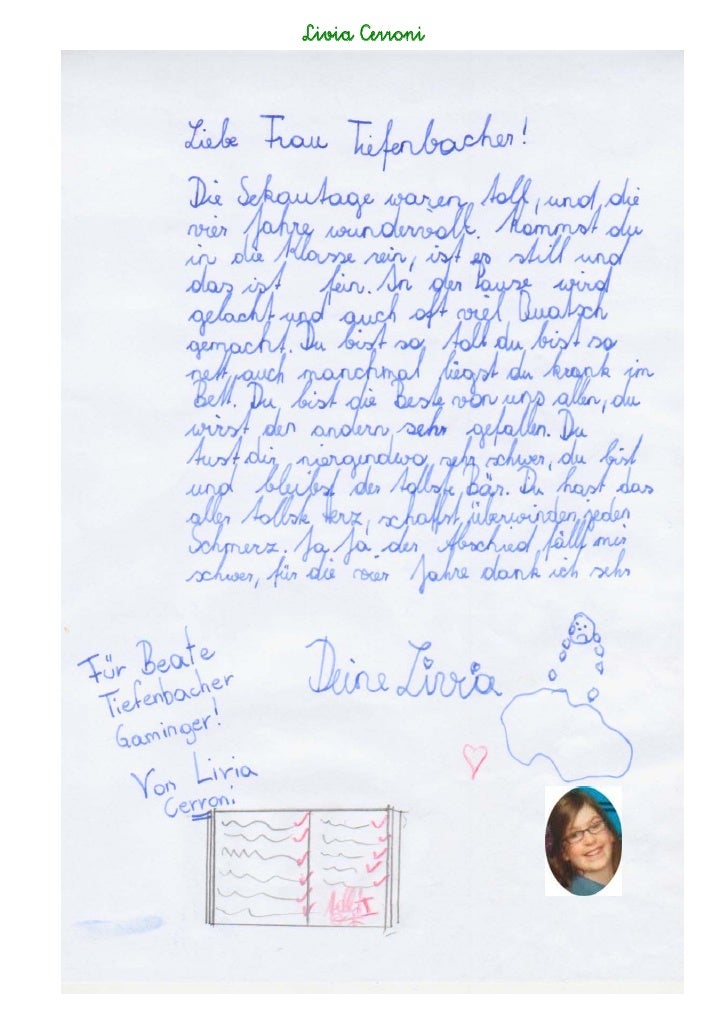 Livia Cerroni
Liebe Frau Tiefenbacher!
Die Sekautage waren toll, und die
vier Jahre wundervoll. Kommst du
in die Klasse rein, ist es still und
das ist fein. In der Pause wird
gelacht und auch oft viel Quatsch
gemacht. Du bist so toll du bist so
nett, auch manchmal liegst du krank im
Bett. Du bist die Beste von uns allen, du
wirst den andern sehr gefallen. Du
tust dir niergendwo sehr schwer, du bist
und bleibst der tollste Bär. Du hast das
aller tollste Herz, schaffst überwinden jeden
Schmerz. Ja Ja der Abschied fällt mir
schwer, für die vier Jahre dank ich sehr
Deine Livia
Für Beate
Tiefenbacher
Gaminger!
Von Livia
Cerroni